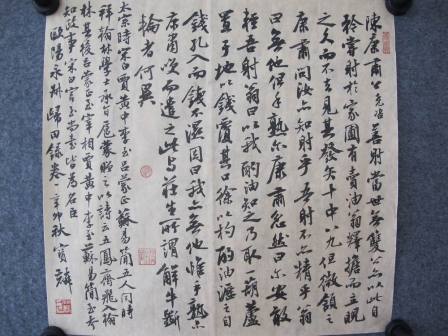 陳康肅公堯咨善射當世無雙公亦以此自
矜嘗射於家圃有賣油翁釋擔而立睨
之久而不去見其發矢十中八九但微頷之
康肅問汝亦知射乎吾射不亦精乎翁
曰無他但手熟爾康肅忿然曰爾安敢
輕吾射翁曰以我酌油知之乃取一葫蘆
置于地以錢覆其口徐以杓酌油瀝之自
錢孔入而錢不濕因曰我亦無他惟手熟爾
康肅笑而遣之此與莊生所謂解牛斲
輪者何異
太宗時宋白賈黃中李至呂蒙正蘇易簡五人同時
拜翰林學士承旨扈蒙贈之以詩云五鳳齊飛入翰
林其後呂蒙正至宰相賈黃中李至蘇易簡至參
知政事宋白官至尚書皆為名臣
歐陽永叔歸田錄卷一辛卯秋寶麟